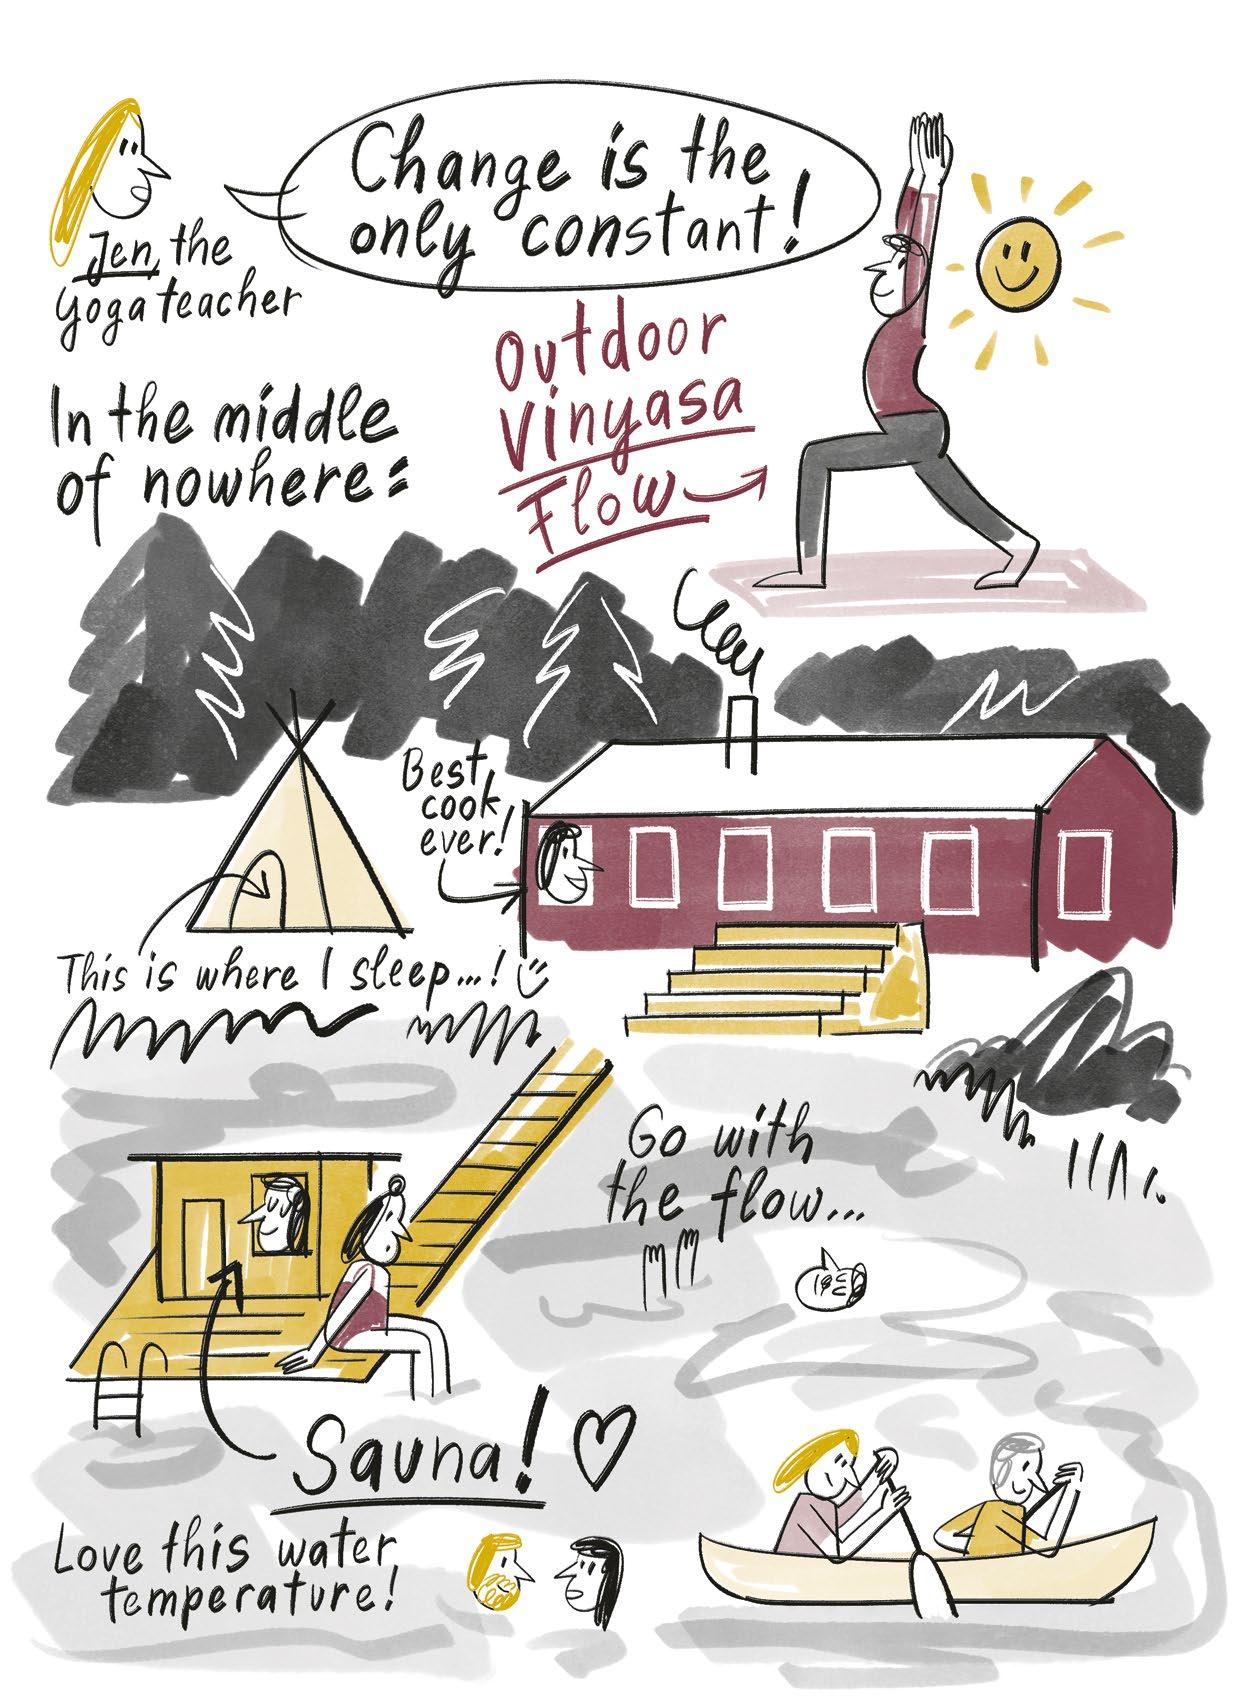 Change is the
only constant!
Jen, the
Yoga teacher
Outdoor
Vinyasa
Flow
In the middle
of nowhere:
Best
cook
ever!
This is where I sleep...!
Go with
the flow...
Sauna!
Love this water
temperature!